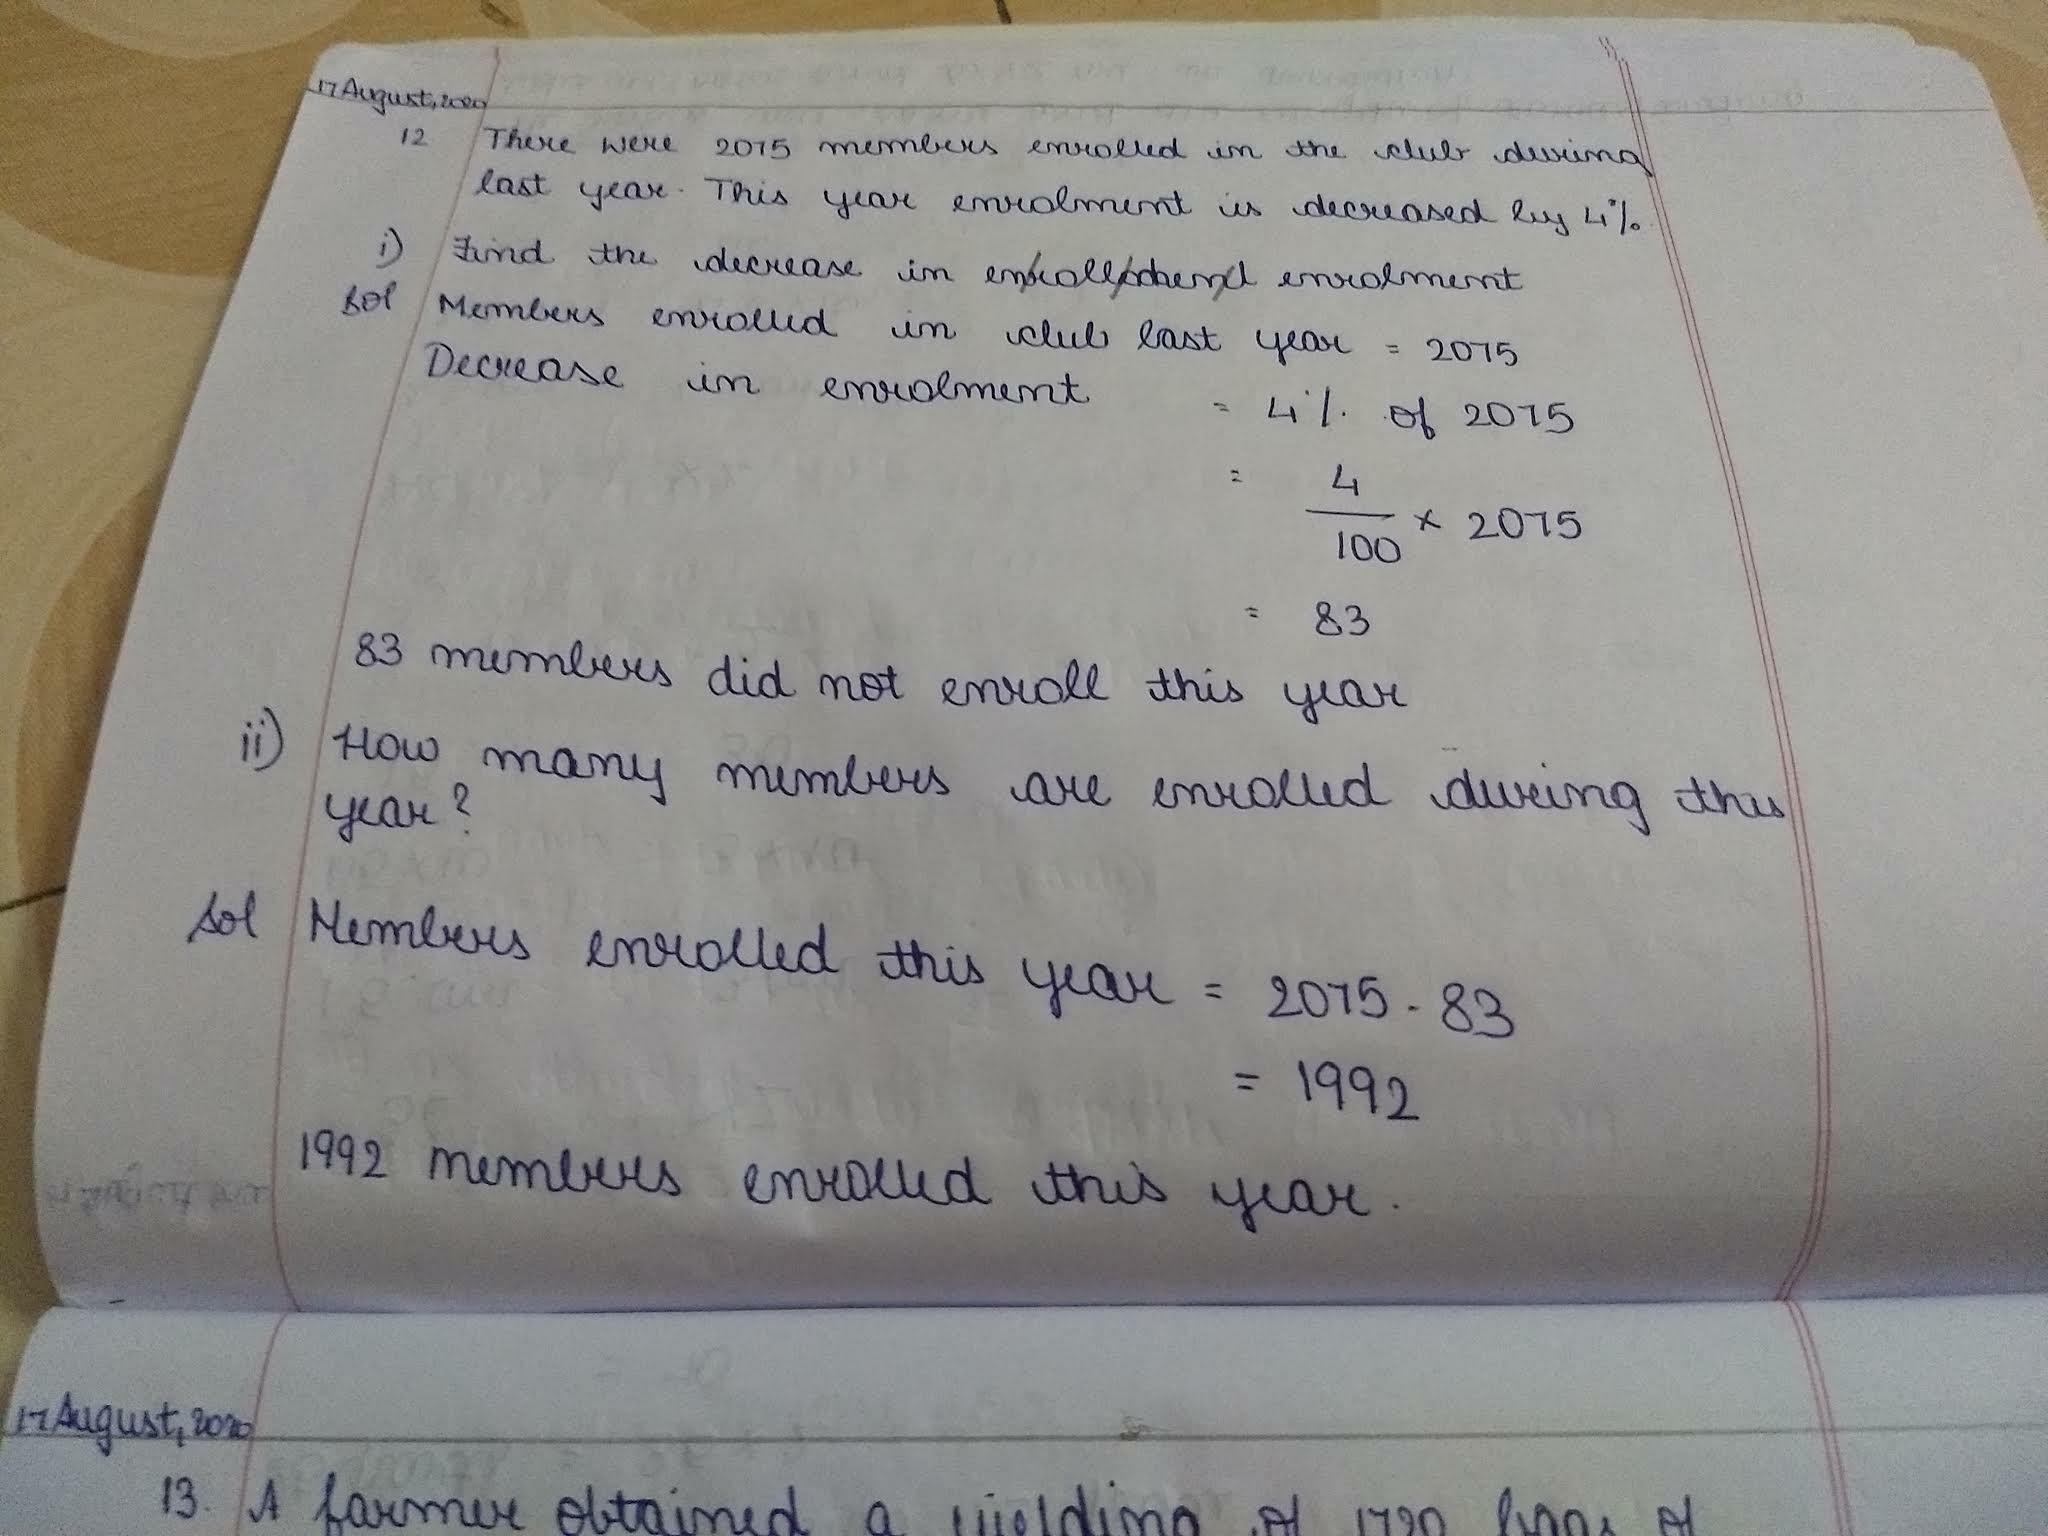 17 August, 2020
12 There were 2075 members enrolled in the club during
last year. This year enrolment is decreased by 4%.
i) Find the decrease in enrolment
Sol Members enrolled in club last year = 2075
Decrease in enrolment = 4% of 2075
= 4/100 × 2075
= 83
83 members did not enroll this year
ii) How many members are enrolled during this
year?
Sol Members enrolled this year = 2075 - 83
= 1992
1992 members enrolled this year.
17 August, 2020
13. A farmer obtained a yielding of 1720 bags of